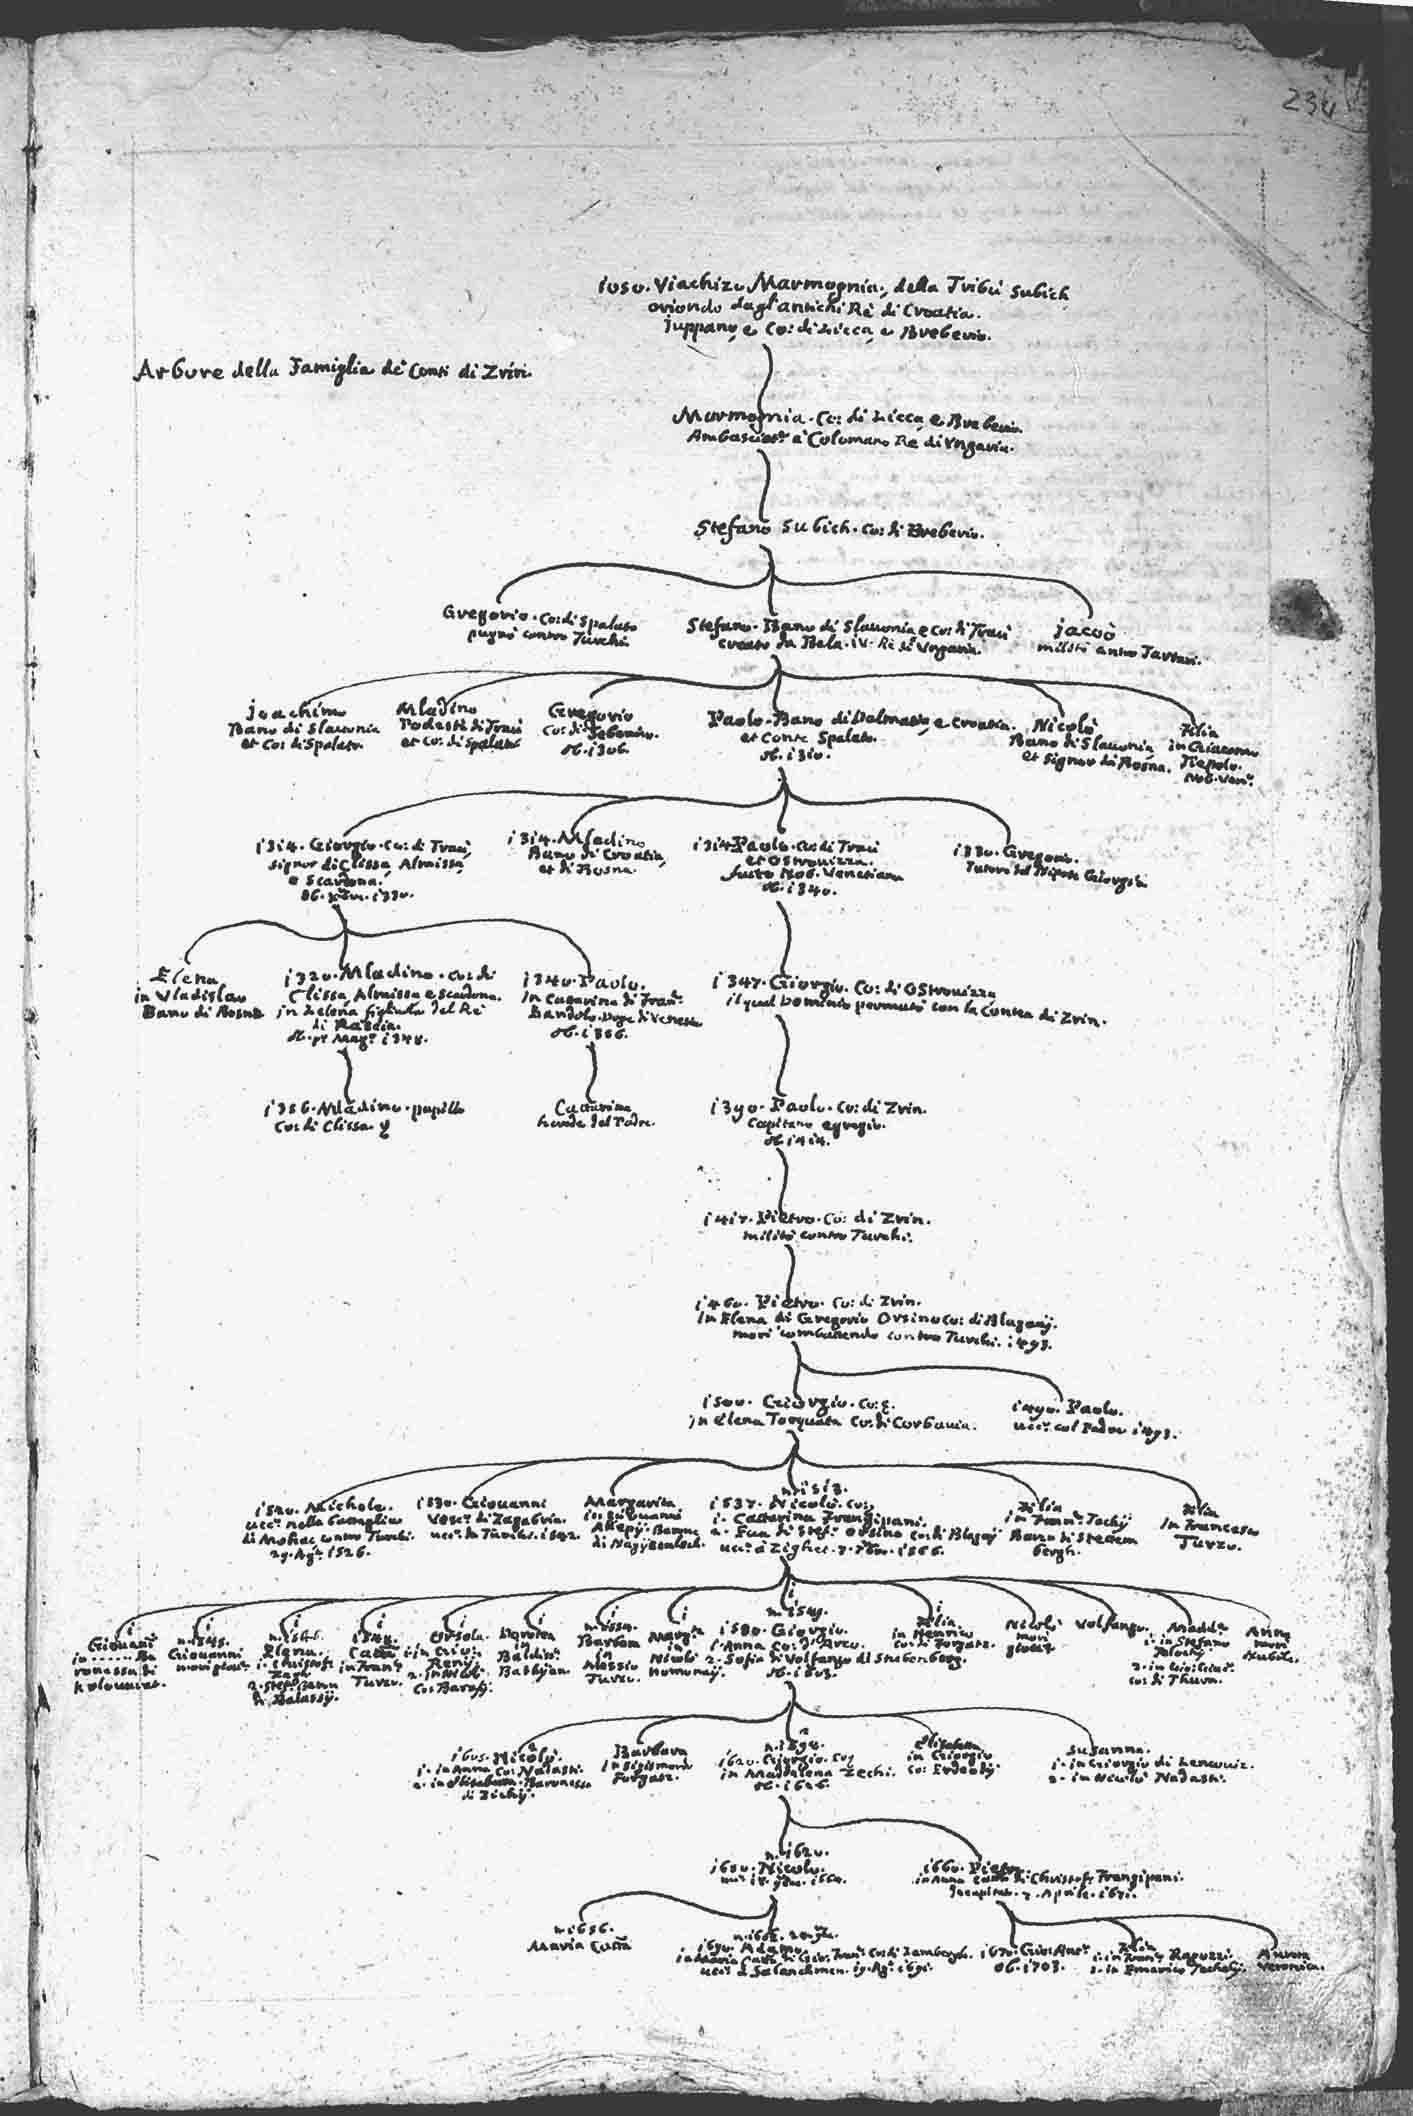 234
1050. Viachizo Marmognia, della Tribù Subich
oriondo dagl'antichi Rè di Croatia.
Juppano, e Co: di Licca, e Breberio.
Arbore della Famiglia de Conti di Zrin.
Marmognia. Co: di Licca, e Breberio.
Ambasciatr à Colomano Re di Vngaria.
Stefano Subich. Co: di Breberio.
Gregorio. Co: di Spalato
pugnò contro Turchi
Stefano. Bano di Slauonia e Co: di Traù
creato da Bela. IV. Rè di Vngaria.
Jacoò
militò Tartari.
Joachino
Bano di Slauonia
et Co: di Spalato.
Mladino
Podestà di Traù
et Co: di Spalato
Gregorio
Co: di Sebenico.
ob. 1306.
Paolo. Bano di Dalmatia, e Croatia.
et Conte Spalato.
ob. 1310.
Nicolò
Bano di Slauonia
et Signor di Bosna.
Filia
in Giacomo
Tiepolo.
Nob. Ven.
1314. Giorgio. Co: di Traù,
Signor di Clissa, Almissa,
e Scardona.
ob. 1330.
1314. Mladino
Bano di Croatia,
et di Bosna.
1314 Paolo. Co: di Traù
et Ostrouizza.
fatto Nob. Venetiano
ob. 1340.
1330. Gregorio.
Tutore del Nipote Giorgio.
Elena
in Vladislao
Bano di Bosna
1320. Mladino. Co: di
Clissa Almissa e Scardona.
in Helena figliola del Rè
di Rascia.
ob. pr Magº 1348.
1340. Paolo.
In Catarina di Franc.
Dandolo. Doge di Venetia
ob. 1356.
1347. Giorgio. Co: di Ostrouizza
il qual Dominio permutò con la Contea di Zrin.
1356. Mladino. pupillo
Co: di Clissa.
Catarina
herede del Padre.
1390. Paolo. Co: di Zrin.
Capitano egregio.
ob. 1414.
1417. Pietro. Co: di Zrin.
militò contro Turchi.
1460. Pietro. Co: di Zrin.
In Elena di Gregorio Orsino Co: di Blagaij.
morì combattendo contro Turchi. 1493.
1500. Giorgio. Co:
in Elena Torquata Co: di Corbauia.
1490. Paolo.
ucc. col Padre 1493.
1520. Michele.
ucc. nella battaglia
di Mohac contro Turchi.
29. Agº 1526.
1530. Giouanni
Vesc. di Zagabria.
ucc. da Turchi. 1542.
Margarita
in Giouanni
Alapij. Barone
di
n. 1513.
1537. Nicolò. Co:
1. Cattarina Frangipani.
2. Eua di Stef. Orsino Co: di Blagaij
ucc. à Zighet. 7. 7bre. 1566.
Filia
in Franc. Tachij
Baro di
bergh.
Filia
In Francesco
Turzo.
i
in ...... Ba
ronessa di
i
n. 1545.
Giouanni
i
n. 1546.
Elena.
i
Catta
in Franc.
Turzo.
i
Orsola.
i
Dorotea
in
Baldis.
Bathjan.
i
Barbara
in
Alessio
Turzo.
i
Marga
in
Nicolò
Homonaij.
i
n. 1549.
1580. Giorgio.
1. Anna Co: d'Arco.
2. Sofia di Volfango di Stubenberg.
ob. 1603.
i
Filia
in Henrico
Co: di Forgatz.
Nicolò
morì
Volfango.
Madda
1. in Stefano
Co: di Thurn.
Anna
morì
Nubile.
1605. Nicolò.
1. in Anna Co: Nadasti.
2. in Elisabetta. Baronessa
di Zichij.
Barbara
in Sigismon.
Forgatz.
n. 1598.
1620. Giorgio. Co:
in Maddalena Zechi.
ob. 1626.
Elisabetta
in Giorgio
Co: Erdeodij.
Susanna.
1. in Giorgio di Lencouiz.
2. in Nicolò Nadasti.
n. 1620.
1650. Nicolo.
1664.
1660. Pietro
in Anna Catta di Christof. Frangipani.
Decapitato. Aprile. 1671.
n. 1656.
Maria Catta
1690. Adamo
ucc. à Salanchmen. 19. Agº 1691.
1670. Gio: Antº
ob. 1703.
Filia
1. in Franc. Ragozzi.
2. in Emerico Techelij.
Aurora
Veronica.